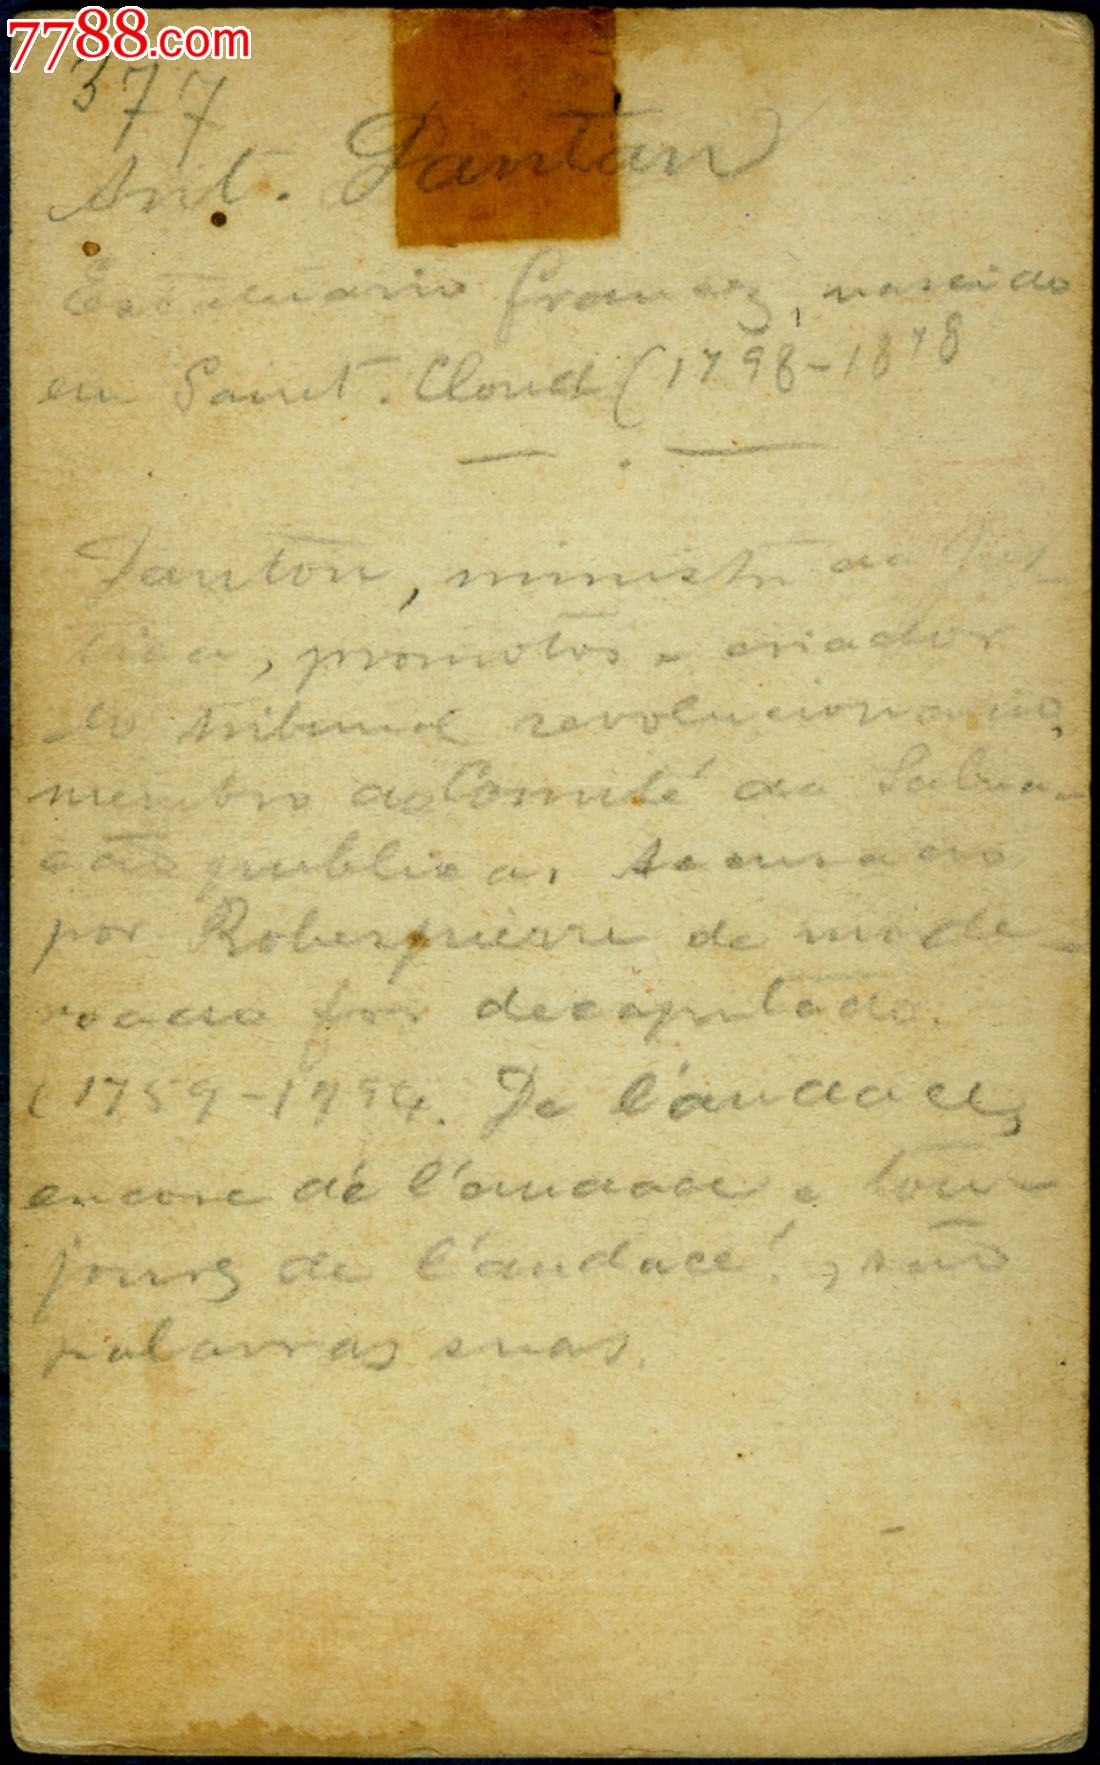 7788.com
377
Ant. Dantan
Estatuario francez, nascido
em Saint. Cloud (1798-1878
Danton, ministro da Jus-
tiça, promotor e criador
do tribunal revolucionario,
membro do Comité da Salva-
ção publica. Accusado
por Roberspierre de mode-
rado foi decapitado.
(1759-1794. De l'audace,
encore de l'audace e tou-
jours de l'audace!, são
palavras suas.